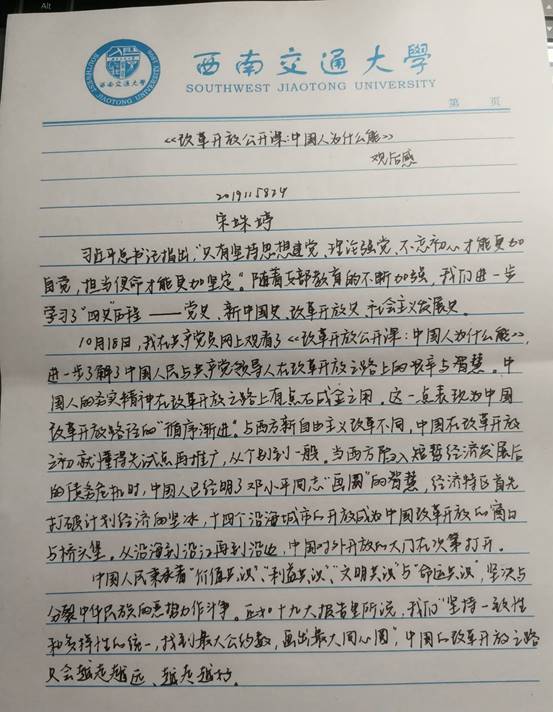 Alt
西南交通大學
SOUTHWEST JIAOTONG UNIVERSITY
第 页
《改革开放公开课:中国人为什么能》
观后感
2019115824
宋珠婷
习近平总书记指出,“只有坚持思想建党、理论强党,不忘初心才能更加
自觉,担当使命才能更加坚定”。随着支部教育的不断加强,我们进一步
学习了“四史”历程——党史、新中国史、改革开放史、社会主义发展史。
10月18日,我在共产党员网上观看了《改革开放公开课:中国人为什么能》,
进一步了解了中国人民与共产党领导人在改革开放之路上的艰辛与智慧。中
国人的务实精神在改革开放之路上有点石成金之用。这一点表现为中国
改革开放路径的“循序渐进”。与西方新自由主义改革不同,中国在改革开放
之初就懂得先试点再推广,从个别到一般。当西方陷入短暂经济发展后
的债务危机时,中国人已经明了邓小平同志“画圈”的智慧,经济特区首先
打破计划经济的坚冰,十四个沿海城市的开放成为中国改革开放的窗口
与桥头堡。从沿海到沿江再到沿边,中国对外开放的大门在次第打开。
中国人民秉承着“价值共识”、“利益共识”、“文明共识”与“命运共识”,坚决与
分裂中华民族的恶势力作斗争。正如十九大报告里所说,我们“坚持一致性
和多样性的统一,找到最大公约数,画出最大同心圆”,中国的改革开放之路
只会越走越远、越走越好。